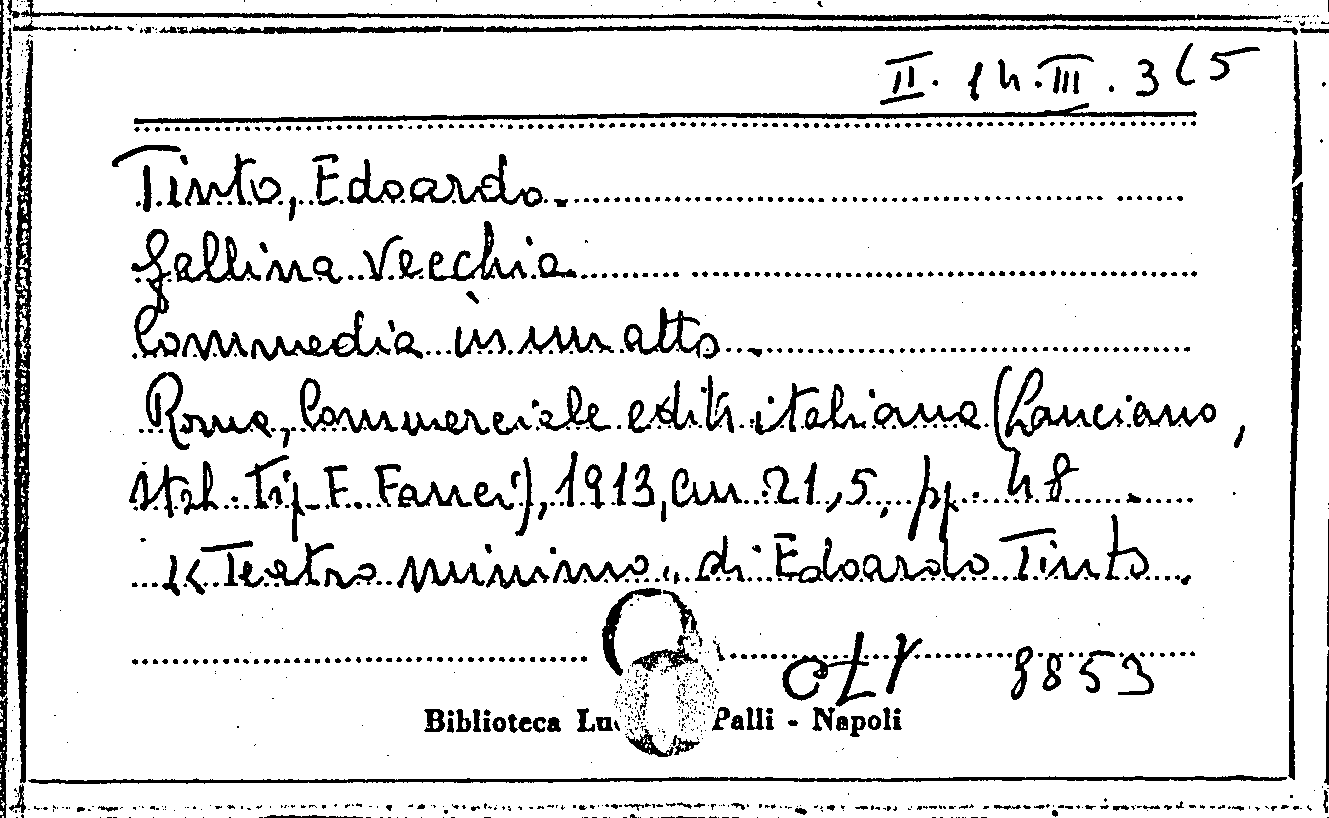 II. 14. III. 3(5
Tinto, Edoardo.
Gallina vecchia.
Commedia in un atto.
Roma, Commerciale edit. italiana (Lanciano,
Stab. Tip. F. Masciangelo), 1913, cm. 21,5, pp. 48.
«Teatro minimo„ di Edoardo Tinto.
8853
Biblioteca Lu Palli - Napoli